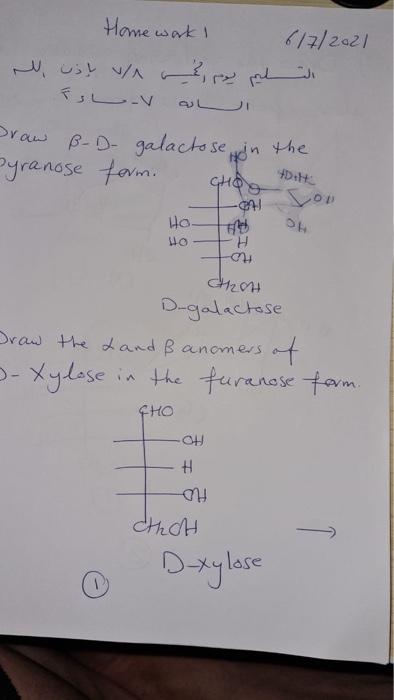 Homework 1
6/7/2021
التسليم يوم الخميس ٧/٨ بإذن الله
الساعة ٧ مساءً
Draw β-D-galactose in the
pyranose form.
CHO
OH
HO H
HO H
OH
CH2OH
D-galactose
Draw the α and β anomers of
D-Xylose in the furanose form.
CHO
OH
H
OH
CH2OH
→
D-xylose
1